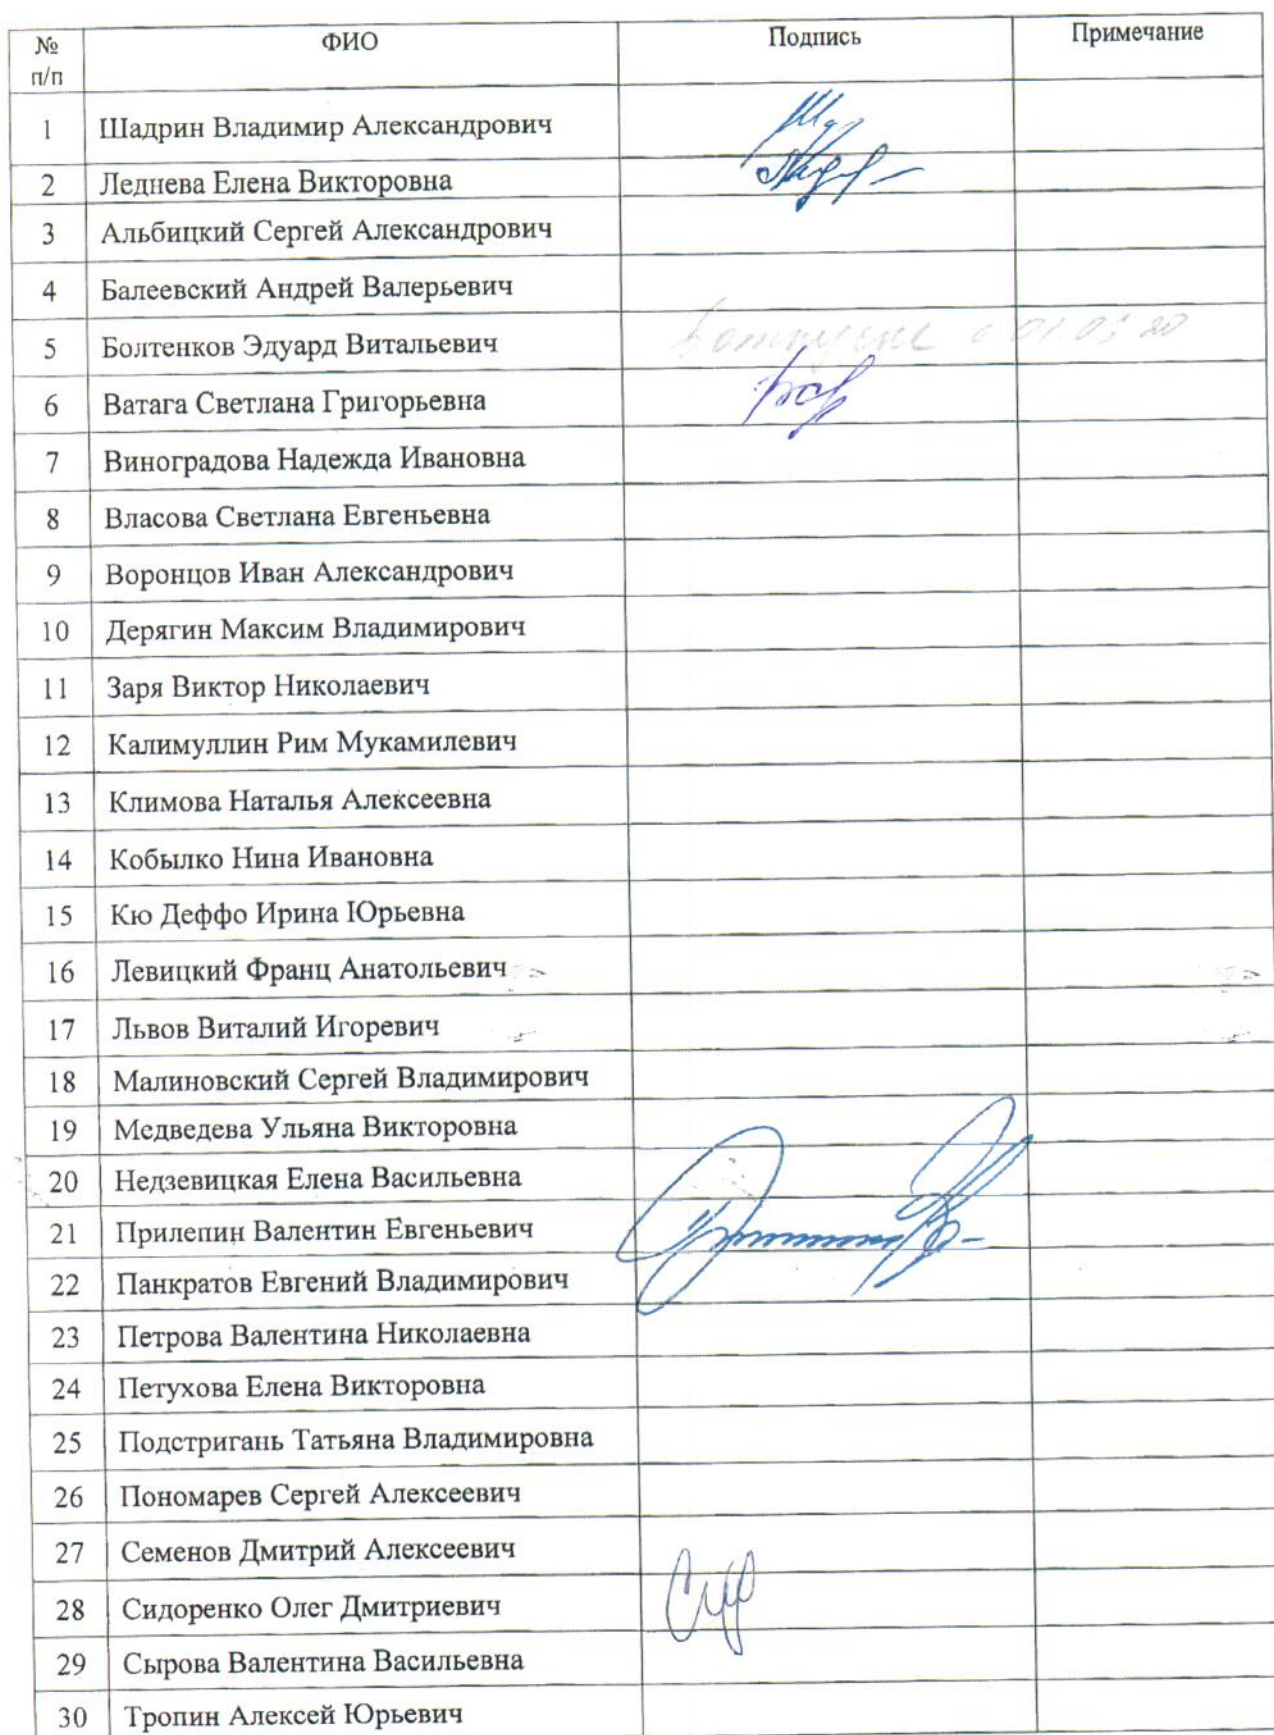 № п/п ФИО Подпись Примечание
1 Шадрин Владимир Александрович
2 Леднева Елена Викторовна
3 Альбицкий Сергей Александрович
4 Балеевский Андрей Валерьевич
5 Болтенков Эдуард Витальевич
6 Ватага Светлана Григорьевна
7 Виноградова Надежда Ивановна
8 Власова Светлана Евгеньевна
9 Воронцов Иван Александрович
10 Дерягин Максим Владимирович
11 Заря Виктор Николаевич
12 Калимуллин Рим Мукамилевич
13 Климова Наталья Алексеевна
14 Кобылко Нина Ивановна
15 Кю Деффо Ирина Юрьевна
16 Левицкий Франц Анатольевич
17 Львов Виталий Игоревич
18 Малиновский Сергей Владимирович
19 Медведева Ульяна Викторовна
20 Недзевицкая Елена Васильевна
21 Прилепин Валентин Евгеньевич
22 Панкратов Евгений Владимирович
23 Петрова Валентина Николаевна
24 Петухова Елена Викторовна
25 Подстригань Татьяна Владимировна
26 Пономарев Сергей Алексеевич
27 Семенов Дмитрий Алексеевич
28 Сидоренко Олег Дмитриевич
29 Сырова Валентина Васильевна
30 Тропин Алексей Юрьевич